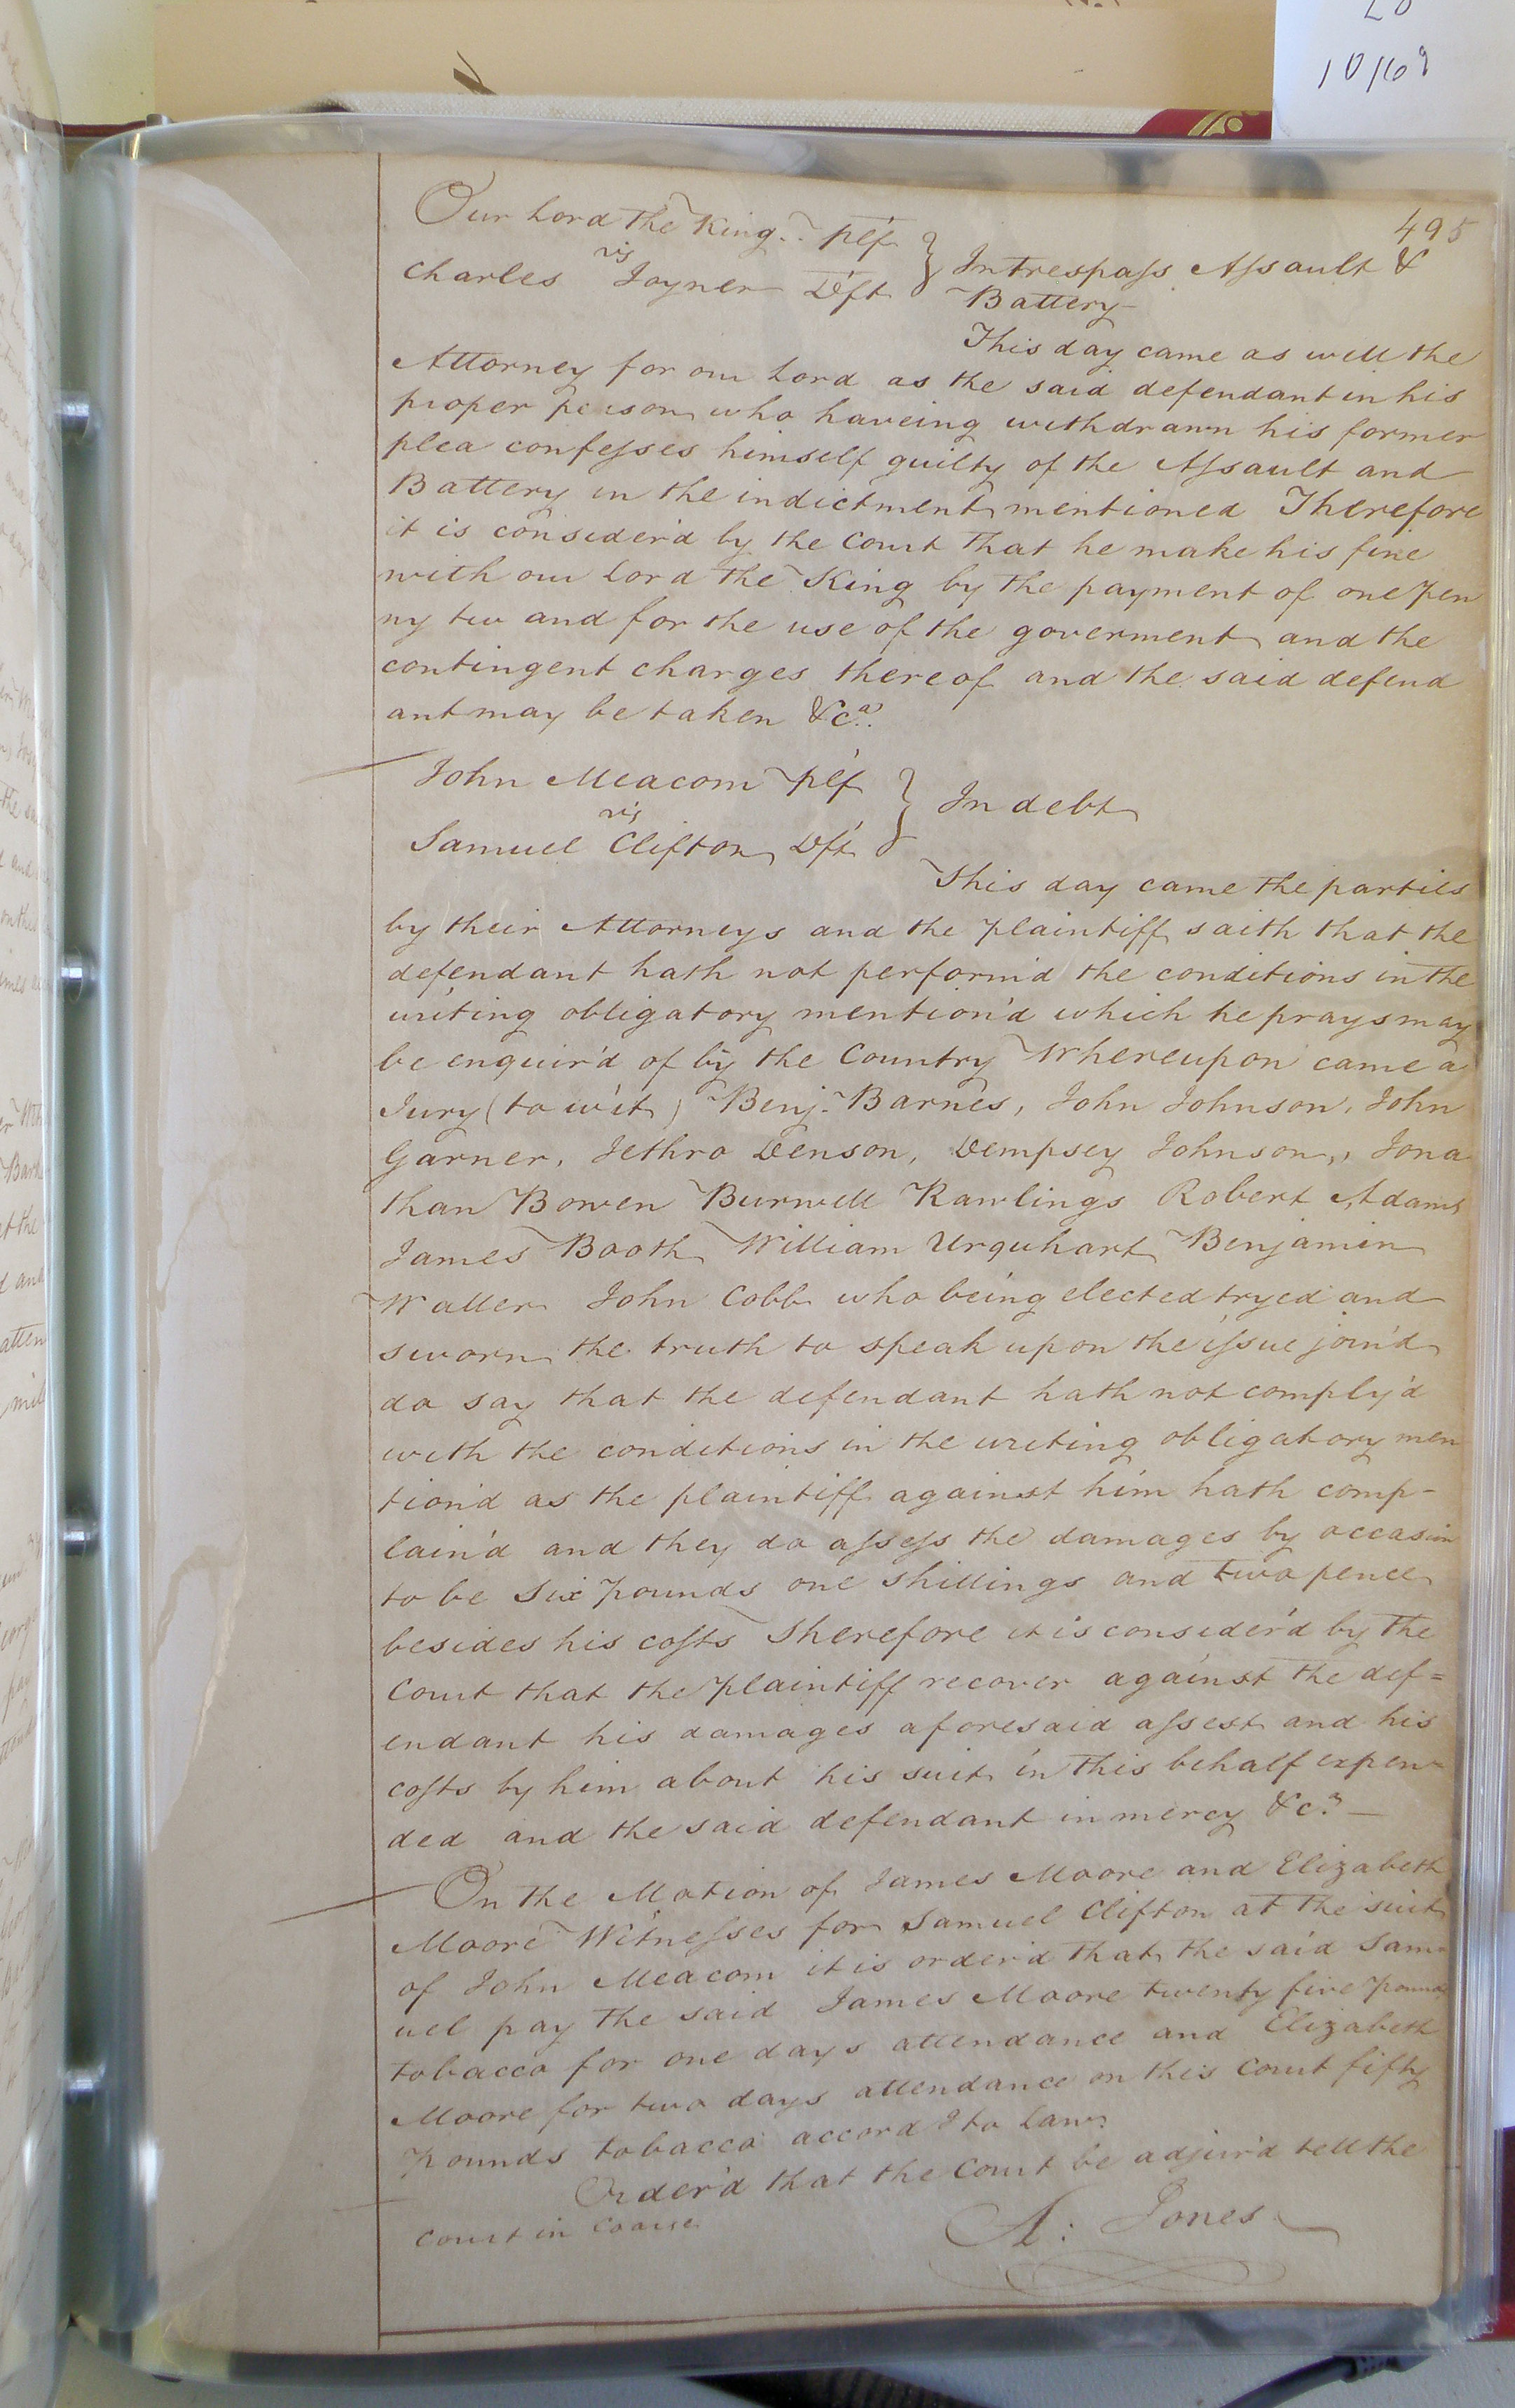 10/69
495
Our Lord the King.. plf
vs
Charles Joyner Dft } In trespass Assault &
Battery
This day came as well the
Attorney for our Lord as the said defendant in his
proper person who haveing withdrawn his former
plea confesses himself guilty of the Assault and
Battery in the indictment mentioned Therefore
it is consider'd by the Court that he make his fine
with our Lord the King by the payment of one pen
ny two and for the use of the goverment and the
contingent charges thereof and the said defend
ant may be taken &ca.
John Meacom plf
vs } In debt
Samuel Clifton Dft
This day came the parties
by their Attorneys and the plaintiff saith that the
defendant hath not perform'd the conditions in the
writing obligatory mention'd which he prays may
be enquir'd of by the Country Whereupon came a
Jury (to wit) Benj. Barnes, John Johnson, John
Garner, Jethro Denson, Dempsey Johnson, Jona
than Bowen Burwell Rawlings Robert Adams
James Booth William Urquhart Benjamin
Waller John Cobb who being elected tryed and
sworn the truth to speak upon the issue join'd
do say that the defendant hath not comply'd
with the conditions in the writing obligatory men
tion'd as the plaintiff against him hath comp-
lain'd and they do assess the damages by occasion
to be Six pounds one shillings and two pence
besides his costs Therefore it is consider'd by the
Court that the plaintiff recover against the def=
endant his damages aforesaid assest and his
costs by him about his suit in this behalf expen-
ded and the said defendant in mercy &ca. —
On the Motion of James Moore and Elizabeth
Moore Witnesses for Samuel Clifton at the suit
of John Meacom it is order'd that the said Sam-
uel pay the said James Moore twenty five pounds
tobacco for one days attendance and Elizabeth
Moore for two days attendance on this Court fifty
pounds tobacco accord to Law.
Order'd that the Court be adjur'd till the
Court in Course
A: Jones